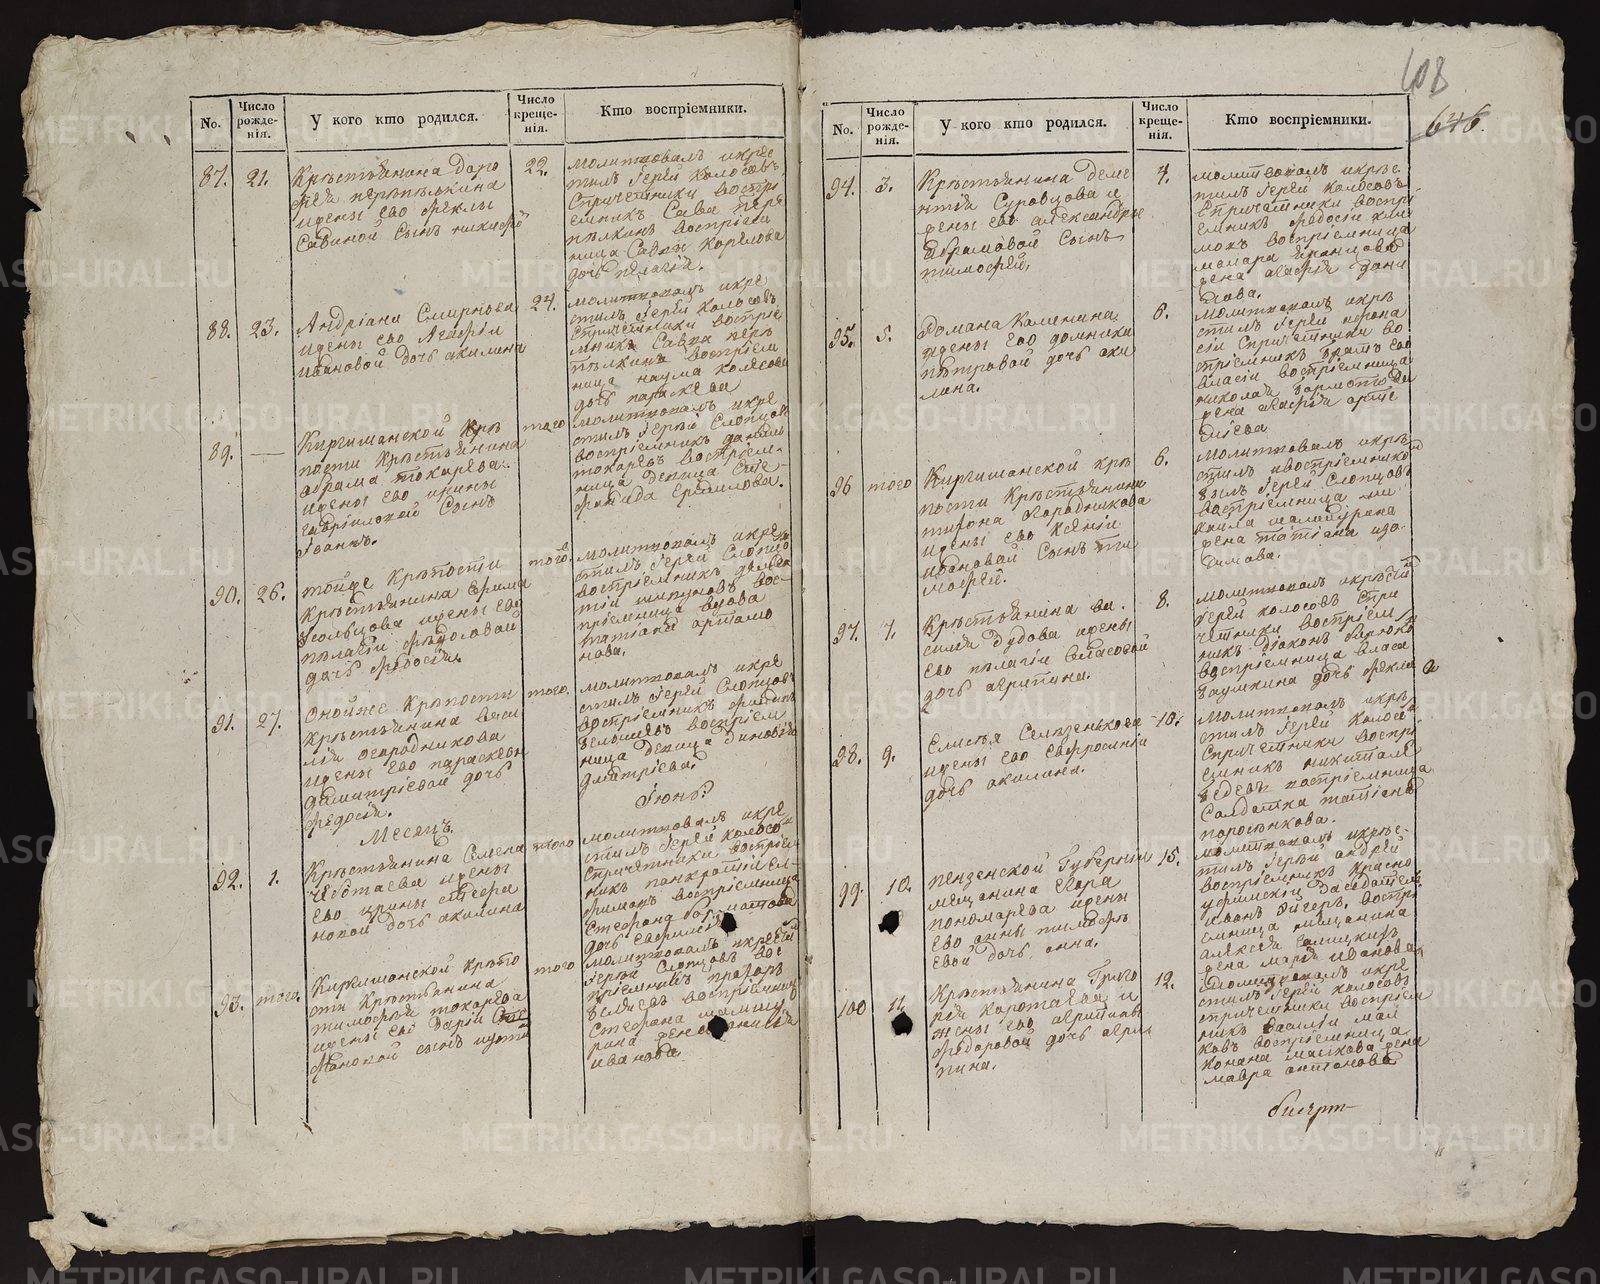 No.
Число рожде-нія.
У кого кто родился.
Число креще-нія.
Кто воспріемники.
87. 21.
Крѣстьянина доро
фея перепѣлкина
ижены его феклы
Савиной Сынъ никифо
22.
молитвовалъ икре
стилъ Іерей Колосовъ
Спричетники воспрі
емникъ Сава пере
пѣлкинъ воспріем
ница Савы Корелова
дочь пелагія.
88. 23.
Андріана Смирнова
ижены его Агафіи
Ивановой дочь акилина
24.
молитвовалъ икре
стилъ Іерей Колосовъ
Спричетники воспріе
мникъ Савва пере
пѣлкинъ воспріем
ница наума колясова
дочь параскева
89. —
Киргишанской Крѣ
пости Крѣстьянина
абрама токарева
ижены его ирины
гавриловой Сынъ
Іоаннъ.
того
молитвовалъ икре
стилъ Іерей Слопцовъ
воспріемникъ данилъ
токаревъ воспріем-
ница девица Сте-
фанида Ермилова.
90. 26.
тойже Крѣпости
Крѣстьянина Ефима
Гольцова ижены его
пелагіи федоловой
дочь федосія.
того.
молитвовалъ икре
стилъ Іерей Слопцо
воспріемникъ дѣмен
тій шипуновъ вос-
пріемница вдова
татіана артамо
нова.
91. 27.
Онойже Крѣпости
Крѣстьянина васи
лія огародникова
ижены его параскевы
димитріевой дочь
федосія.
того.
молитвовалъ икре
стилъ Іерей Слопцовъ
воспріемникъ филипъ
бельшевъ воспріем
ница девица Зиновія
дмитріева.
Месяцъ Іюнь:
92. 1.
Крѣстьянина Семена
Чеботаева ижены
его ирины стефа
новой дочь акилина
того
молитвовалъ икре
стилъ Іерей колосо
Спричетники воспріем
никъ панкратій ем-
филовъ воспріемница
стефана
дочь евфимія
93. того.
Киргишанской Крѣпо
сти Крѣстьянина
тимофея токарева
ижены его Дарій Сте
фановой сынъ
того
молитвовалъ икрѣстилъ
Іерей Слопцовъ вос
пріемникъ прохоръ
беляевъ воспріемница
стефана шамшу
рина жена анисія
иванова
108
646.
No.
Число рожде-нія.
У кого кто родился.
Число креще-нія.
Кто воспріемники.
94. 3.
Крѣстьянина деме
нтія Суровцова и
жены его александры
Абрамовой Сынъ
тимофей.
4.
молитвовалъ икрѣс
тилъ Іерей Колосовъ
Спричетники воспрі
емникъ федосій клі
мовъ воспріемница
макара иванцова
жена агафія дани
лова.
95. 5.
Романа Каменина
ижены его домники
петровой дочь аки
лина.
6.
молитвовалъ икрѣ
стилъ Іерей иерона
сій Спричетники во
спріемникъ братъ его
власій воспріемница
николая бармотова
жена агафія арте
мова
96 того
Киргишанской крѣ
пости Крѣстьянина
тихона Огародникова
ижены его Ксеніи
ивановой Сынъ ти
мофей.
6.
молитвовалъ икрѣ
стилъ ивоспріемником
былъ Іерей Слопцовъ
воспріемница ми
хаила шамшурина
жена татіана изо
тимова.
97. 7.
Крѣстьянина ва-
силія Дудова ижены
его пелагіи Власовой
дочь агрипина.
8.
молитвовалъ икрестилъ
Іерей колосовъ Спри
четники воспріем
никъ діаконъ
воспріемница власа
баушкина дочь фекла
98. 9.
Елисея Селезенькова
ижены его евфросиніи
дочь акилина.
10.
Молитвовалъ икрѣ
стилъ Іерей колосов
Спричетники воспрі
емникъ никита ле
бедевъ воспріемница
Салдатка татіана
поросенкова.
99. 10.
пензенской Губерніи
мещанина Егора
пономарева ижены
его анны тимофе
евой дочь анна.
15.
молитвовалъ икрѣс-
тилъ Іерей андрей
воспріемникъ красно
уфимскій Заседатель
иванъ Эйгеръ. воспрі
емница мещанина
алексея Голицкихъ
жена марія иванова
100 11.
Крѣстьянина Григо
рія Коротаева и
жены его агрипины
федоровой дочь агри
пина.
12.
молитвовалъ икре
стилъ Іерей колосовъ
спричетники воспріем
никъ василій мал
ковъ воспріемница
Конана малкова жена
мавра антонова